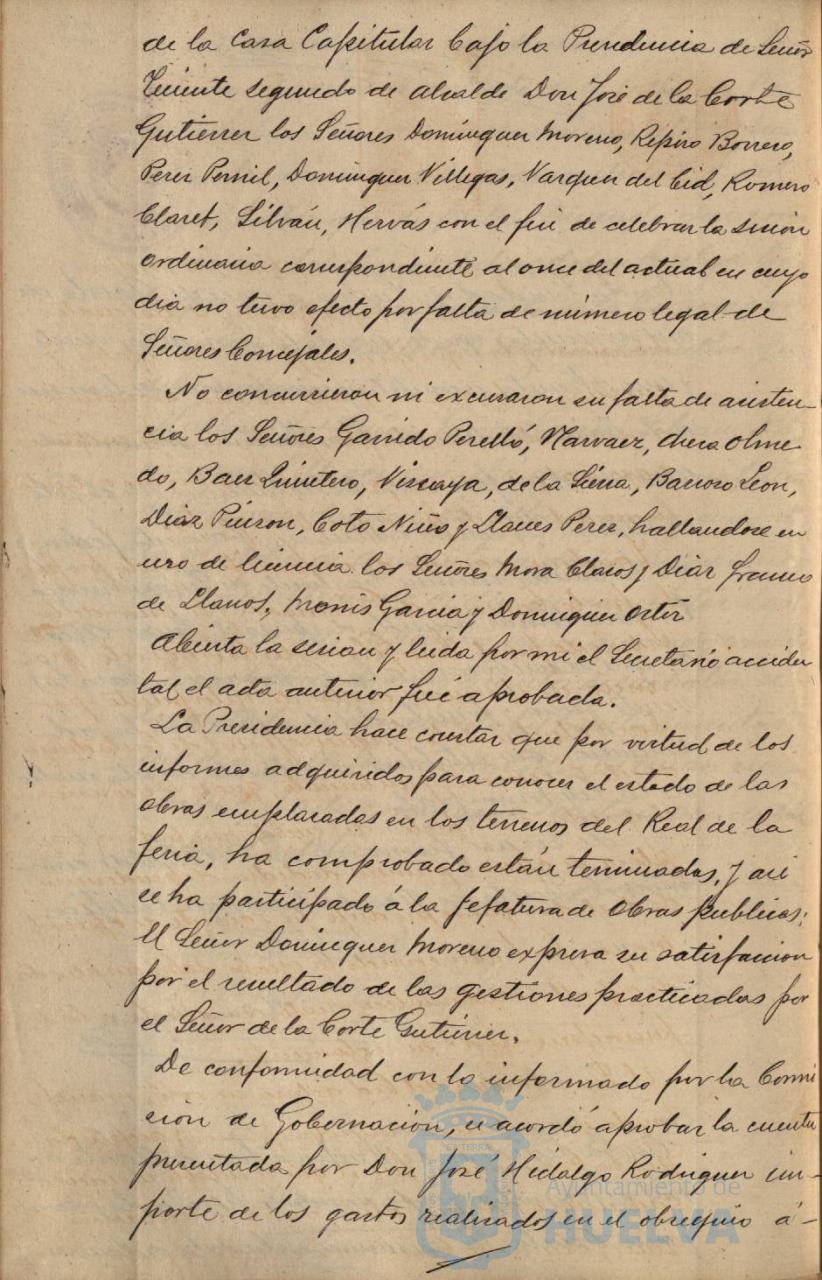 de la Casa Capitular bajo la Presidencia de Señor
Teniente segundo de alcalde Don José de la Corte
Gutierrez los Señores Dominguez Moreno, Répiso Borrero,
Perez Pernil, Dominguez Villegas, Vazquez del Cid, Romero
Claret, Silván, Hervás con el fin de celebrar la sesión
ordinaria correspondiente al once del actual en cuyo
dia no tuvo efecto por falta de número legal de
Señores Concejales.
No concurrieron ni excusaron su falta de asisten-
cia los Señores Garrido Perelló, Narvaez, Olme
do, Baez Quintero, Vizcaya, de la Sierra, Barroso Leon,
Diaz Pinzon, Coto Niño y Llanes Perez, hallandose en
uso de licencia los Señores Mora Claros y Diaz Franco
de Llanos, Monis Garcia y Dominguez Ortiz
Abierta la sesion y leida por mi el Secretario acciden
tal el acta anterior fué aprobada.
La Presidencia hace constar que por virtud de los
informes adquiridos para conocer el estado de las
obras emplazadas en los terrenos del Real de la
feria, ha comprobado están terminadas, y asi
se ha participado á la Jefatura de Obras publicas;
El Señor Dominguez Moreno expresa su satisfaccion
por el resultado de las gestiones practicadas por
el Señor de la Corte Gutierrez.
De conformidad con lo informado por la Comi
sion de Gobernacion, se acordó aprobar la cuenta
presentada por Don José Hidalgo Rodriguez im-
porte de los gastos realizados en el obsequio á-
Ayuntamiento de
HUELVA